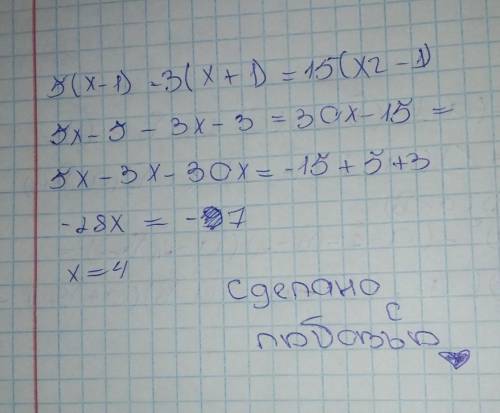 5(x-1) -3(x+1) = 15(x2 -1)
5x-5 - 3x-3 = 30x-15 =
5x-3x-30x=-15+5+3
-28x = -7
x=4
сделано
с
любовью